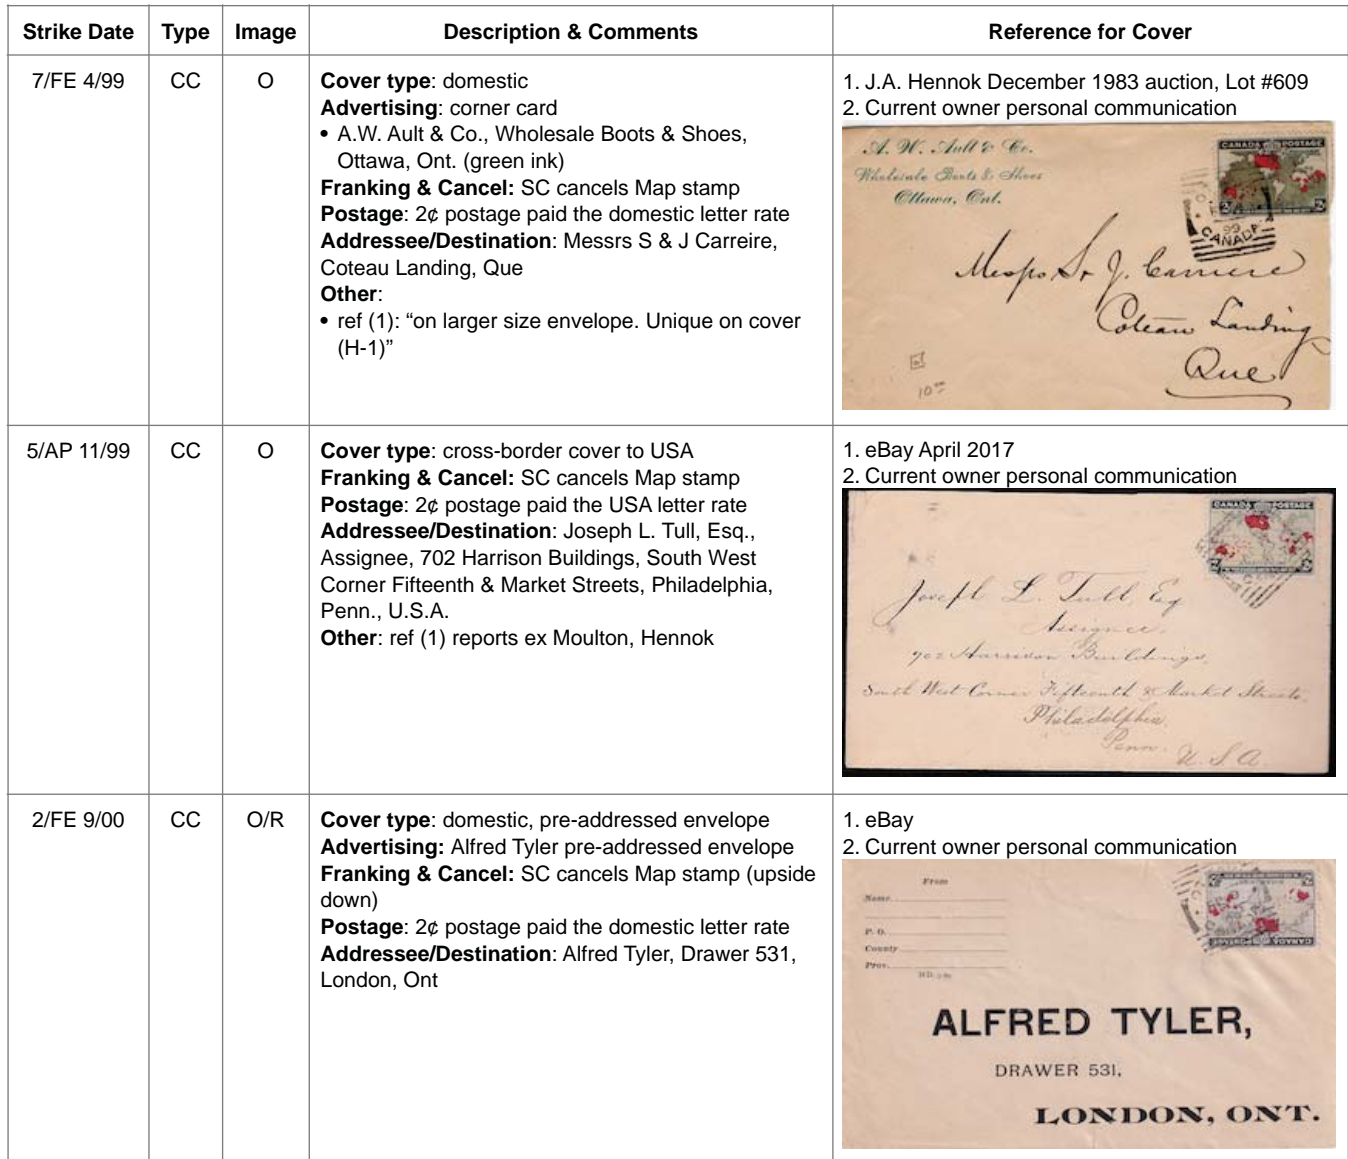 Strike Date Type Image Description & Comments Reference for Cover
7/FE 4/99 CC O
Cover type: domestic
Advertising: corner card
• A.W. Ault & Co., Wholesale Boots & Shoes,
Ottawa, Ont. (green ink)
Franking & Cancel: SC cancels Map stamp
Postage: 2¢ postage paid the domestic letter rate
Addressee/Destination: Messrs S & J Carreire,
Coteau Landing, Que
Other:
• ref (1): “on larger size envelope. Unique on cover
(H-1)”
1. J.A. Hennok December 1983 auction, Lot #609
2. Current owner personal communication
A. W. Ault & Co.
Wholesale Boots & Shoes
Ottawa, Ont.
CANADA POSTAGE
99
CANADA
Messrs S. J. Carriere
Coteau Landing
Que
10
5/AP 11/99 CC O
Cover type: cross-border cover to USA
Franking & Cancel: SC cancels Map stamp
Postage: 2¢ postage paid the USA letter rate
Addressee/Destination: Joseph L. Tull, Esq.,
Assignee, 702 Harrison Buildings, South West
Corner Fifteenth & Market Streets, Philadelphia,
Penn., U.S.A.
Other: ref (1) reports ex Moulton, Hennok
1. eBay April 2017
2. Current owner personal communication
CANADA POSTAGE
Joseph L. Tull, Esq
Assignee.
702 Harrison Buildings,
South West Corner Fifteenth & Market Streets,
Philadelphia,
Penn.
U.S.A.
2/FE 9/00 CC O/R
Cover type: domestic, pre-addressed envelope
Advertising: Alfred Tyler pre-addressed envelope
Franking & Cancel: SC cancels Map stamp (upside
down)
Postage: 2¢ postage paid the domestic letter rate
Addressee/Destination: Alfred Tyler, Drawer 531,
London, Ont
1. eBay
2. Current owner personal communication
From
Name
P. O.
County
Prov.
CANADA POSTAGE
ALFRED TYLER,
DRAWER 531,
LONDON, ONT.